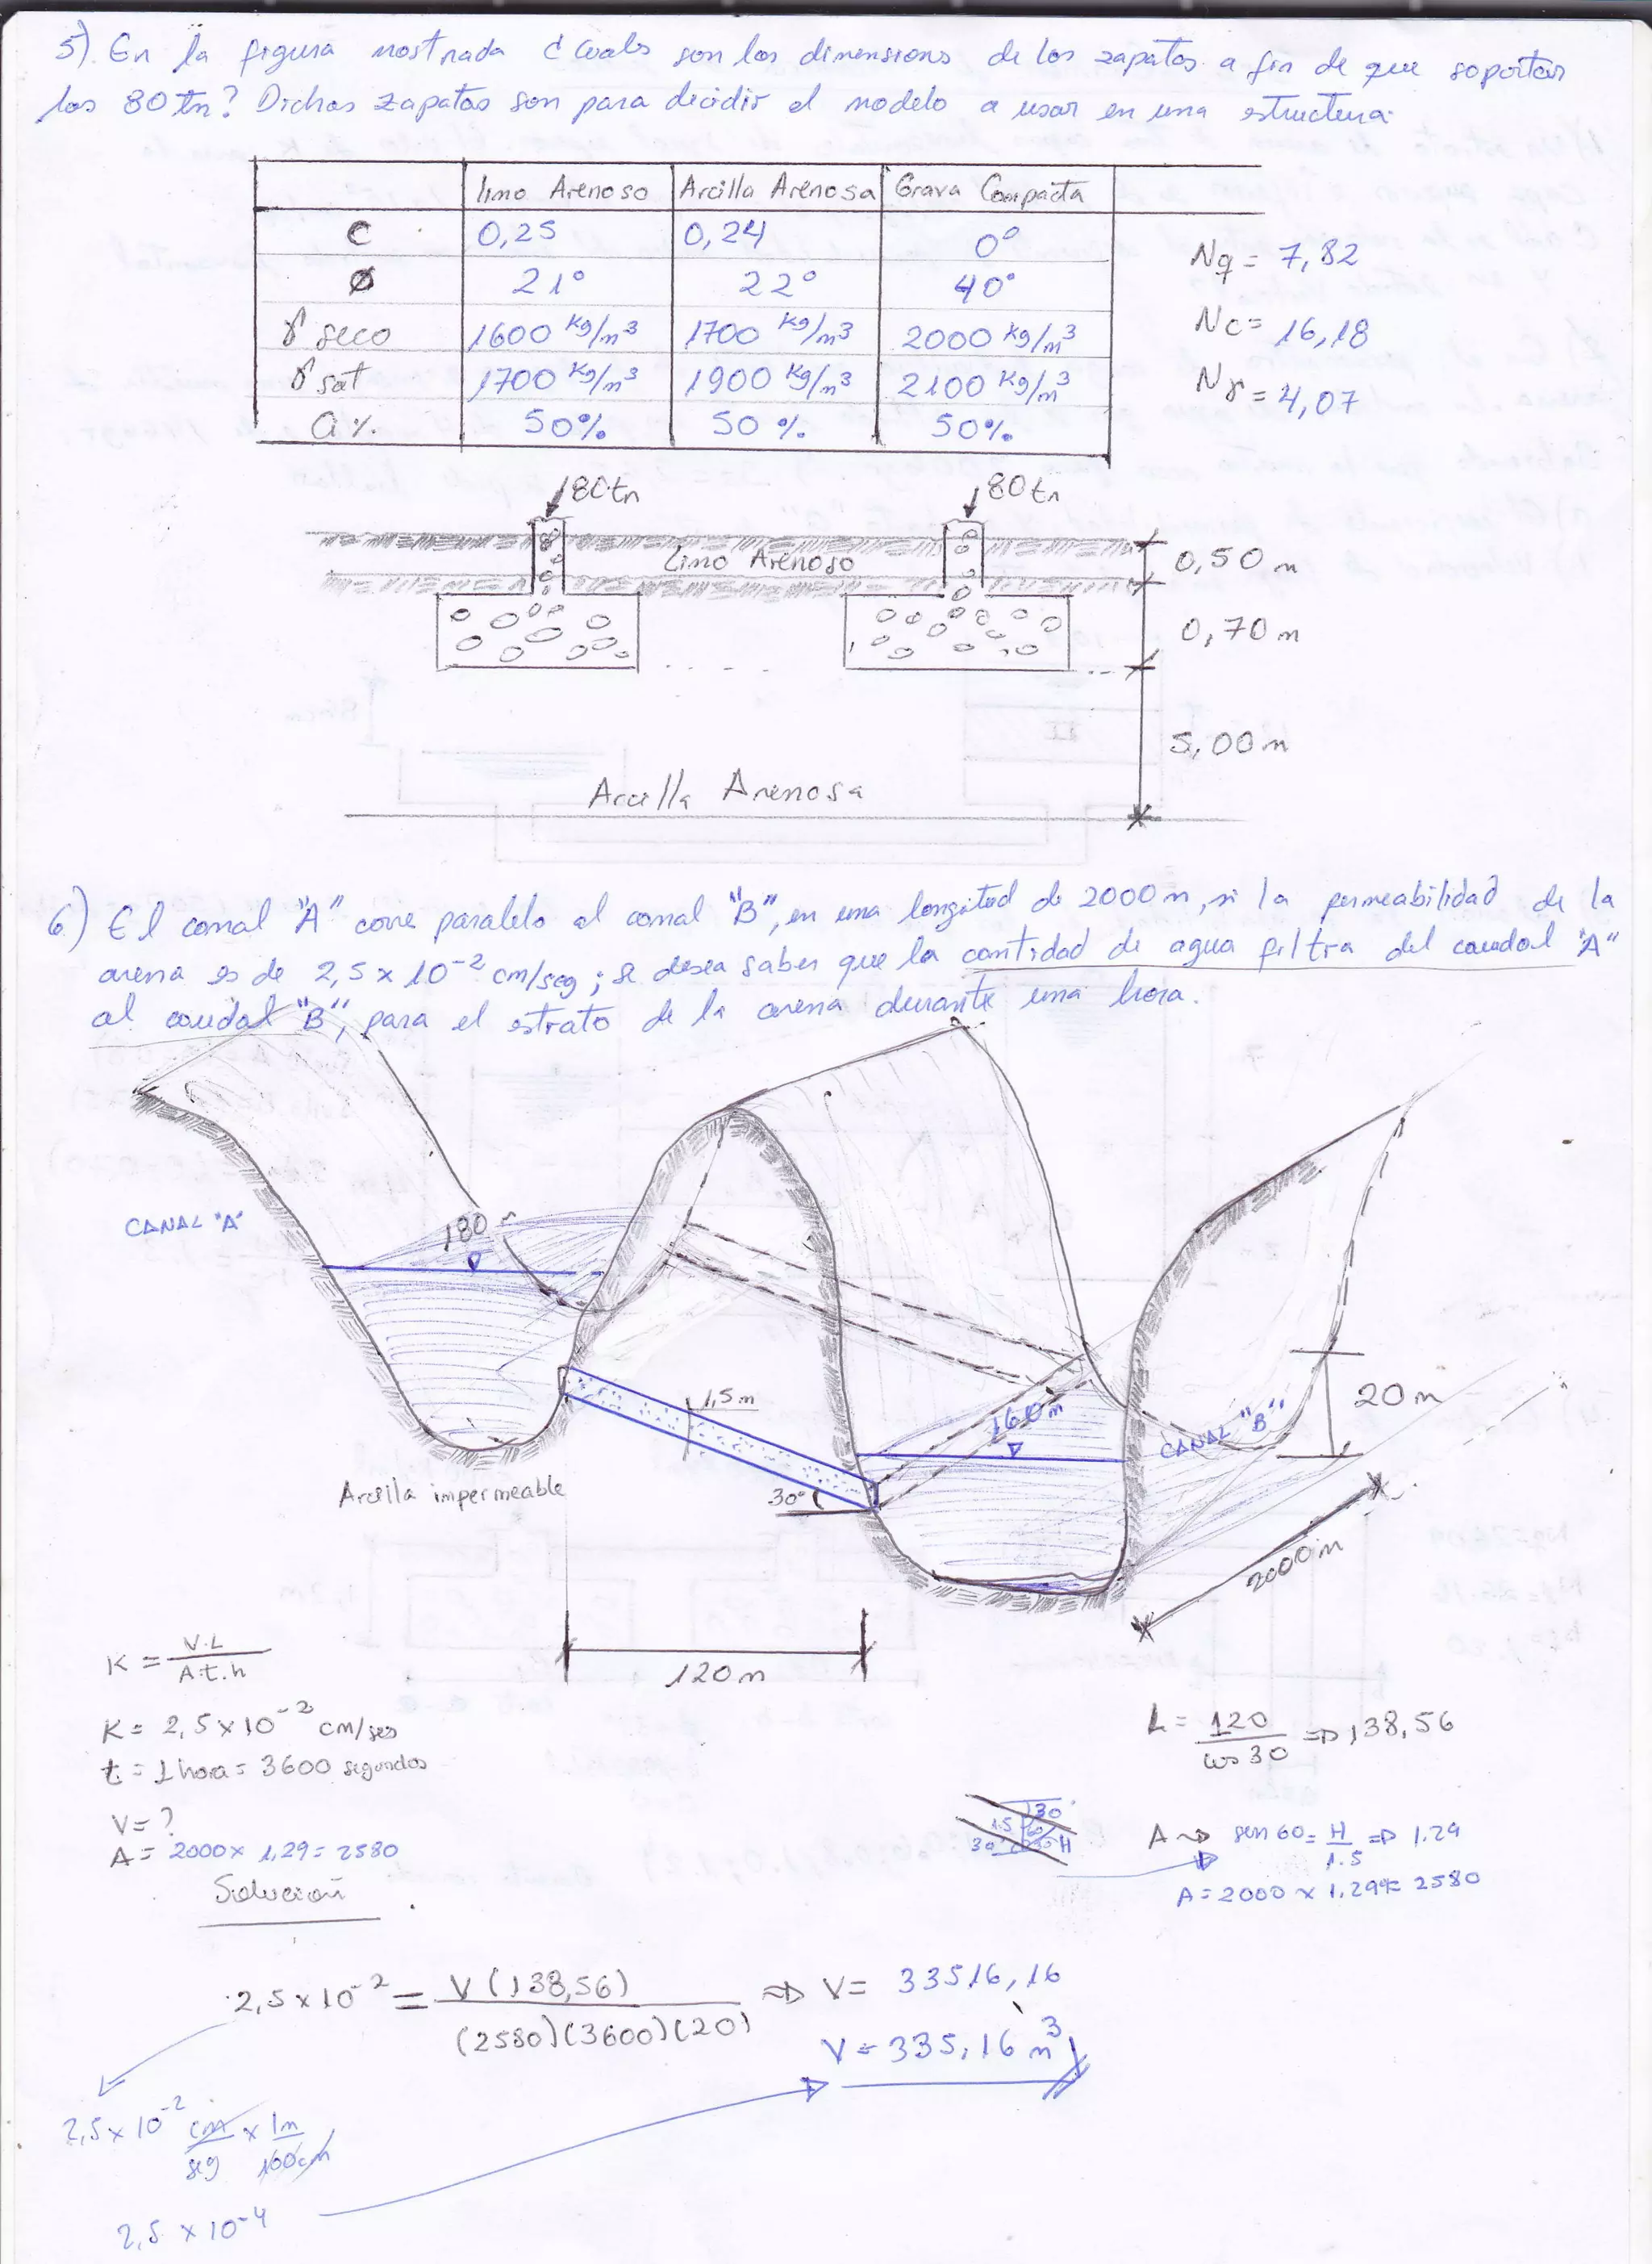 5). En la figura mostrada ¿Cuales son las dimensiones de los zapatos a fin de que soportar
las 80 tn? Dichas zapatas son para decidir el modelo a usar en una estructura.
Limo Arenoso Arcilla Arenosa Grava Compacta
C 0,25 0,24 0°
Ø 21° 22° 40°
γ seco 1600 kg/m³ 1700 kg/m³ 2000 kg/m³
γ sat 1700 kg/m³ 1900 kg/m³ 2100 kg/m³
a% 50% 50% 50%
Nq = 7,82
Nc = 16,18
Nγ = 4,07
80tn 80tn
Limo Arenoso
0,50 m
0,70 m
5,00 m
Arcilla Arenosa
6) El canal "A" corre paralelo al canal "B", en una longitud de 2000 m, si la permeabilidad de la
arena es de 2,5 x 10⁻² cm/seg; se desea saber que la cantidad de agua filtra del caudal "A"
al caudal "B", para el estrato de la arena durante una hora.
CANAL "A"
180
1,5 m
160 m
CANAL "B"
20 m
30°
Arcilla impermeable
2000 m
120 m
K = V.L / A.t.h
K = 2,5 x 10⁻² cm/seg
t = 1 hora = 3600 segundos
V = ?
A = 2000 x 1,29 = 2580
Solución
L = 120 / cos 30 => 138,56
30
1.5 60
30 H
A → sen 60 = H / 1.5 => 1.29
A = 2000 x 1,29 = 2580
2,5 x 10⁻² = V (138,56) / (2580)(3600)(20) => V = 33516,16
V = 335,16 m³
2,5 x 10⁻² cm/seg x 1m/100cm
2,5 x 10⁻⁴